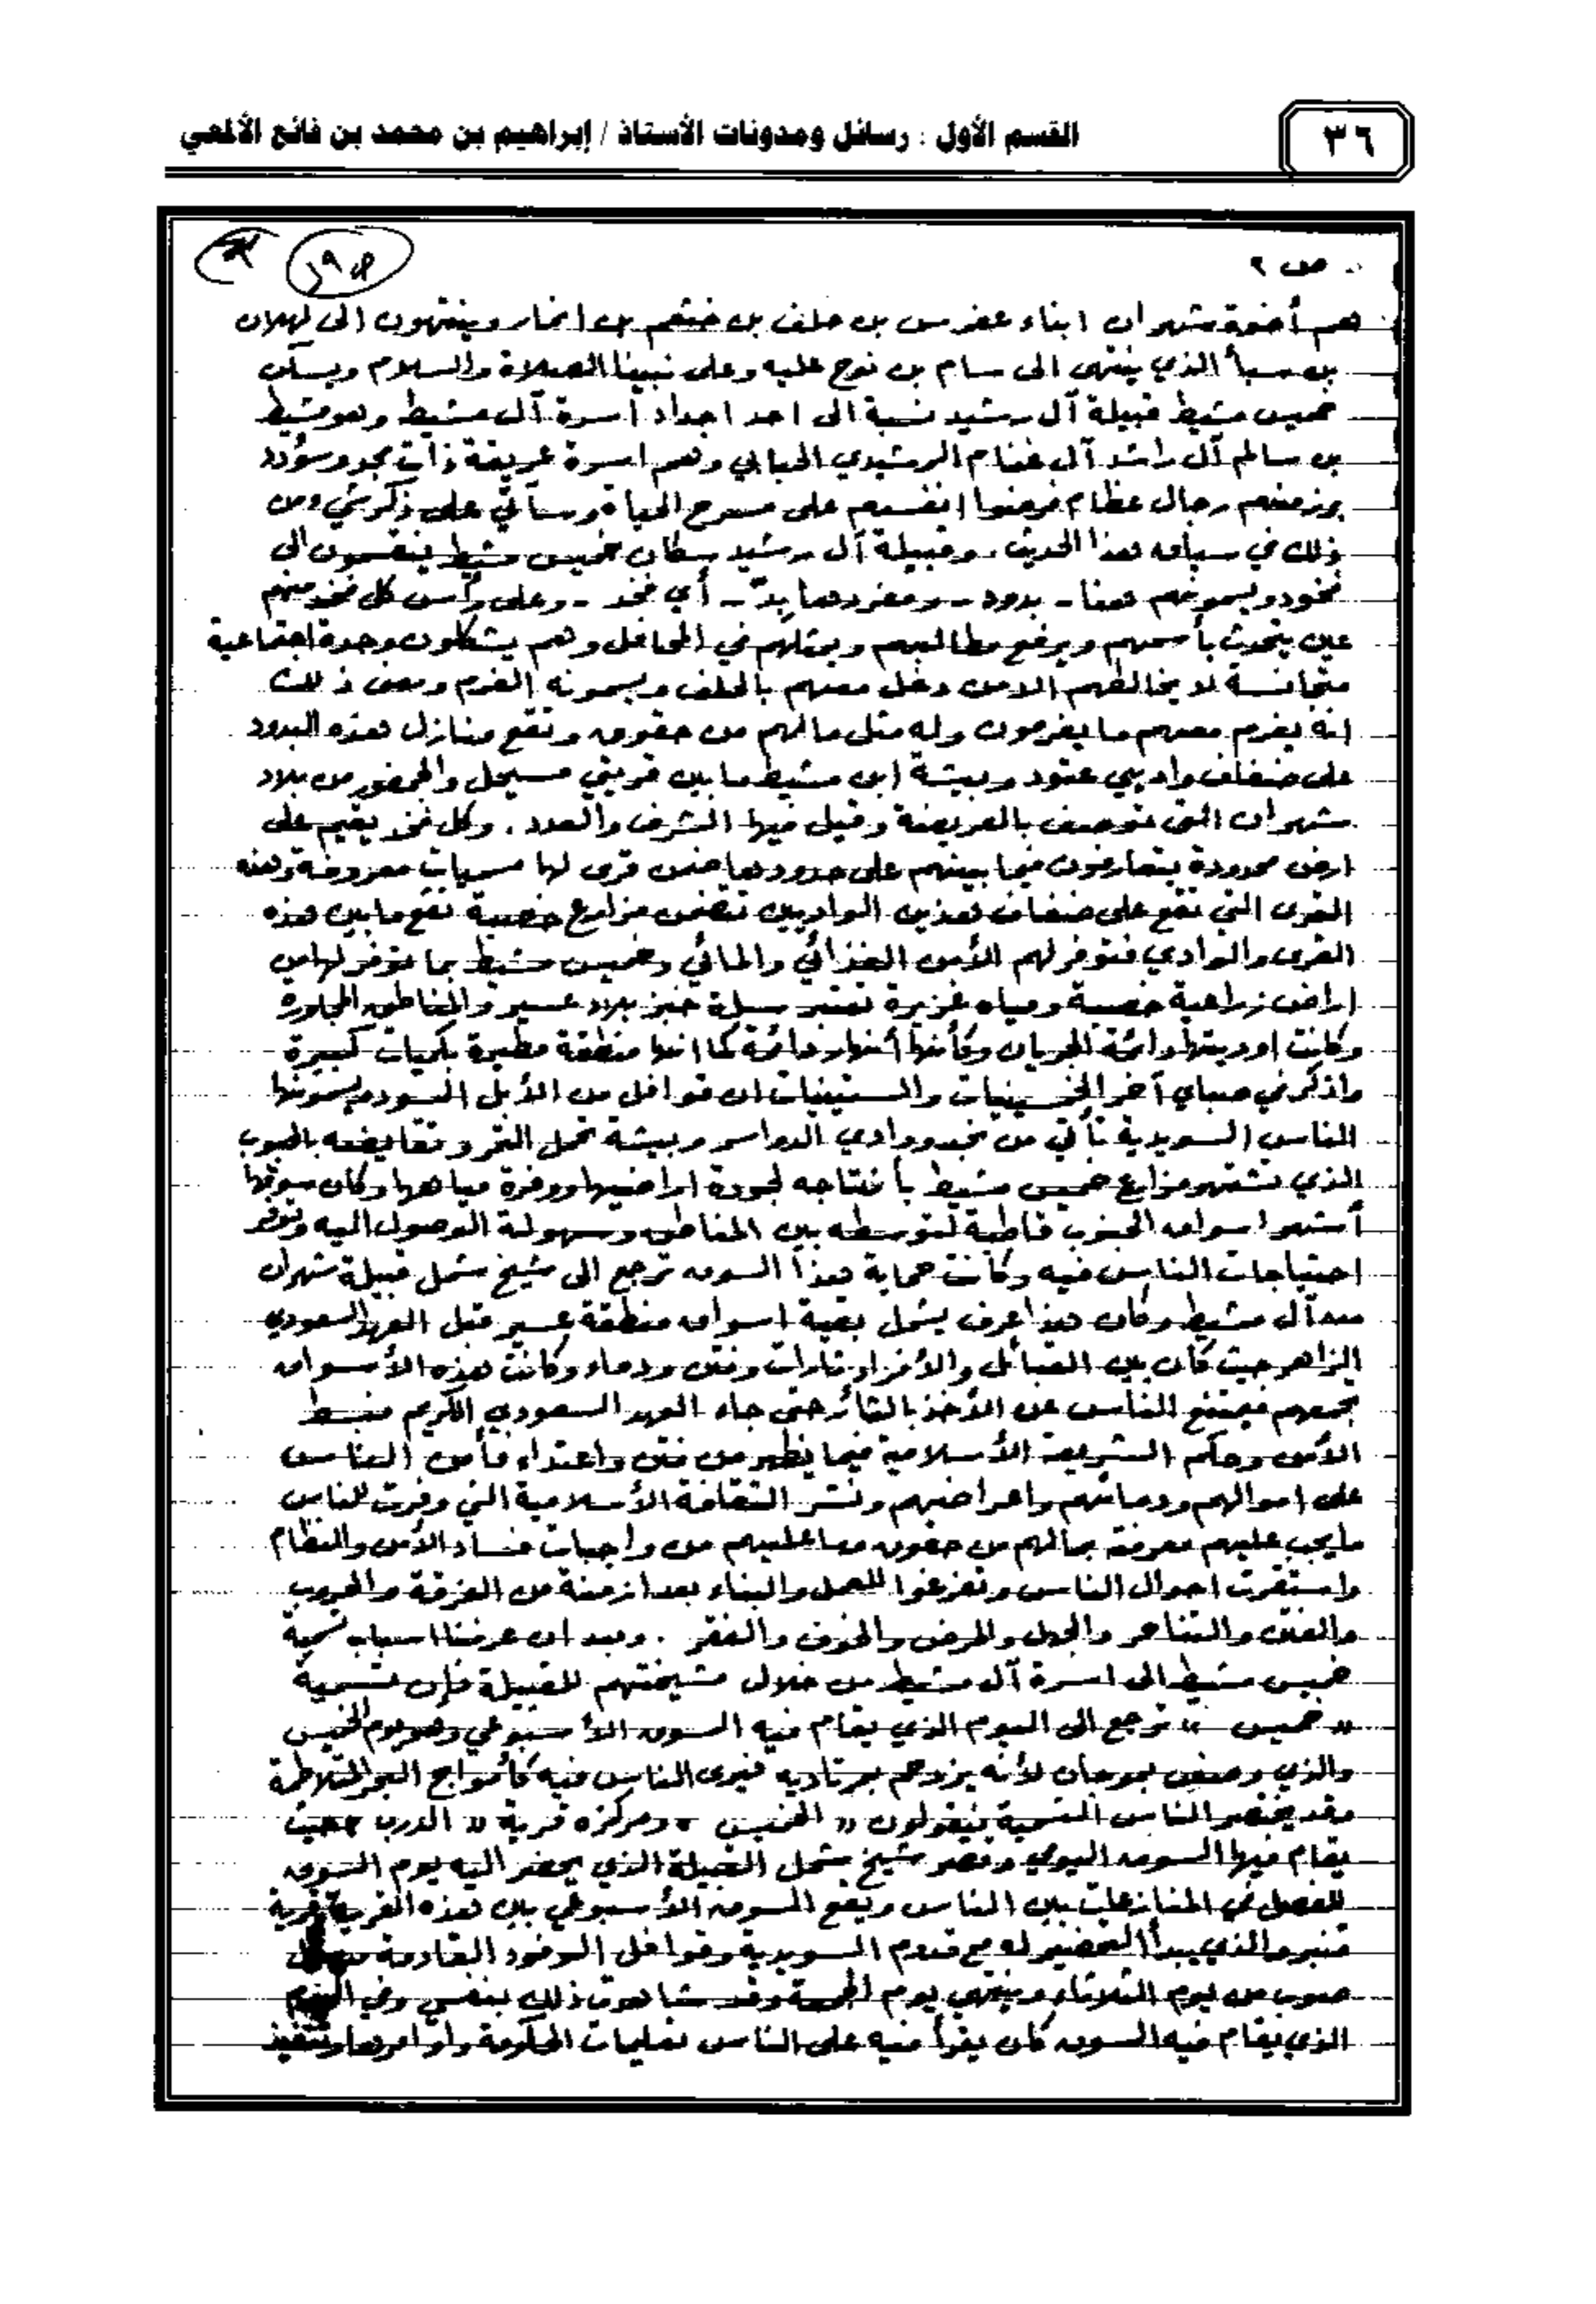 ٣٦
القسم الأول : رسائل ومدونات الأستاذ / إبراهيم بن محمد بن فائع الألمعي
ص ٢
هم أخوة شهران ابناء عفرس بن حلف بن خثعم بن انمار وينتهون الى كهلان
بن سبأ الذي ينتهي الى سام بن نوح عليه وعلى نبينا الصلاة والسلام ويسكن
خميس مشيط قبيلة آل رشيد نسبة الى احد اجداد اسرة آل مشيط وهو مشيط
بن سالم آل راشد آل غنام الرشيدي الجبابي وهم اسرة عريقة ذات مجد وسؤدد
برز منهم رجال عظام فرضوا انفسهم على مسرح الحياة وسآتي على ذكر شيء من
ذلك في سياق هذا الحديث . وقبيلة آل رشيد سكان خميس مشيط ينقسمون الى
فخود ويسمونهم هنا - بدود - ومفردها بدّ - أي فخذ - وعلى رأس كل فخذ منهم
عين يتحدث بأسمهم ويرفع مطالبهم ويمثلهم في المحافل وهم يشكلون وحدة اجتماعية
متجانسة لا يخالطهم الا من دخل معهم بالحلف ويسمونه الغرم ومعنى ذلك
انه يغرم معهم ما يغرمون وله مثل مالهم من حقوق وتقع منازل هذه البدود
على ضفاف واديي عتود وبيشة ابن مشيط ما بين قريتي مسيجل والمحضور من بلاد
شهران التي توصف بالعريضة وقيل فيها الشرف والعدد . وكل فخذ يقيم على
ارض محدودة يتعارفون فيما بينهم على حدودها ضمن قرى لها مسميات معروفة وهذه
القرى التي تقع على ضفاف هذين الواديين تتضمن مزارع خصبة تقع ما بين هذه
القرى والوادي فتوفر لهم الأمن الغذائي والمائي وخميس مشيط بما توفر لها من
اراض زراعية خصبة ومياه غزيرة تعتبر سلة خبز بلاد عسير والمناطق المجاورة
وكانت اوديتها دائمة الجريان وكأنها أنهار دائمة كما انها منطقة مطيرة بكميات كبيرة
واذكر في صباي آخر الخمسينيات والستينيات ان قوافل من الأبل السود يسمونها
الناس السويدية تأتي من نجد ووادي الدواسر وبيشة تحمل التمر وتقايضه بالحبوب
الذي تشتهر مزارع خميس مشيط بأنتاجه لجودة اراضيها ووفرة مياهها وكان سوقها
أشهر اسواق الجنوب قاطبة لتوسطه بين المناطق وسهولة الوصول اليه وتوفر
احتياجات الناس فيه وكانت حماية هذا السوق ترجع الى شيخ شمل قبيلة شهران
من آل مشيط وكان هذا عرف يشمل بقية اسواق منطقة عسير قبل العهد السعودي
الزاهر حيث كان بين القبائل والأفراد ثارات وفتن ودماء وكانت هذه الأسواق
تجمعهم فيمتنع الناس عن الأخذ بالثأر حتى جاء العهد السعودي الكريم فبسط
الأمن وحكم الشريعة الأسلامية فيما يظهر من فتن واعتداء فأمن الناس
على اموالهم ودمائهم واعراضهم ونشر الثقافة الأسلامية التي وفرت للناس
ما يجب عليهم معرفته بمالهم من حقوق وما عليهم من واجبات فساد الأمن والنظام
واستقرت احوال الناس وتفرغوا للعمل والبناء بعد ازمنة من الفرقة والحروب
والفتن والتناحر والجهل والمرض والخوف والفقر . وبعد ان عرفنا اسباب تسمية
خميس مشيط الى اسرة آل مشيط من خلال مشيختهم للقبيلة فإن تسمية
« خميس » ترجع الى اليوم الذي يقام فيه السوق الأسبوعي وهو يوم الخميس
والذي وصف بموجان لأنه يزدحم بمرتاديه فيرى الناس فيه كأمواج البحر المتلاطمة
وقد يختصر الناس التسمية فيقولون « الخميس » ومركزه قرية « الدرب » حيث
يقام فيها السوق اليومي وقصر شيخ شمل القبيلة الذي يحضر اليه يوم السوق
للفصل في المنازعات بين الناس ويقع السوق الأسبوعي بين هذه القرية وقرية
قنبر والذي يبدأ التحضير له مع قدوم السويدية وقوافل الوفود القادمة من كل
صوب من يوم الثلاثاء وينتهي يوم الجمعة وقد شاهدت ذلك بنفسي وفي اليوم
الذي يقام فيه السوق كان يقرأ فيه على الناس تعليمات الحكومة وأوامرها وتنفيذ